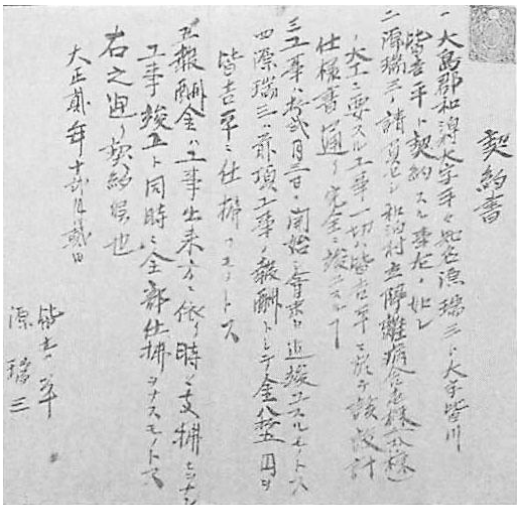 契約書
一 大島郡和泊村大字手々知名源瑞三ト大字皆川
皆吉平ト契約スル事左ノ如シ
二 源瑞三ノ請負セシ和泊村立隔離病舎
大工ニ要スル工事一切ハ皆吉平ニ於テ該設計
仕様書通リ完全ニ竣工スルヿ
三 工事ハ拾弐月三日ヨリ開始シ 迄竣工スルモノトス
四 源瑞三ハ前項工事ノ報酬トシテ金八拾五円ヲ
皆吉平ニ仕拂フモノトス
五 報酬金ハ工事出来方ニ依リ時々支拂ヒヲナシ
工事竣工ト同時ニ全部仕拂ヲナスモノトス
右之通リ契約候也
大正貳年十弐月貳日
皆吉平
源瑞三